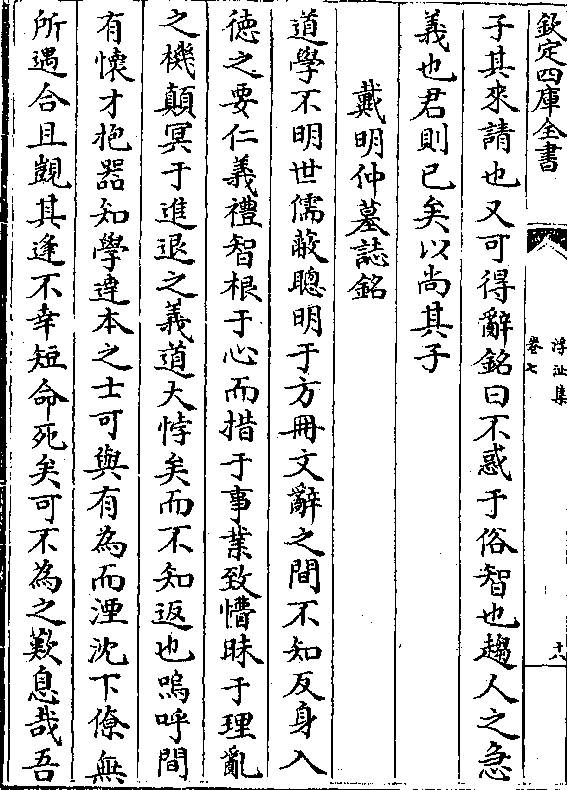 欽定四庫全書
浮沚集
卷七
十八
子其來請也又可得辭銘曰不惑于俗智也趨人之急
義也君則已矣以尚其子
戴明仲墓誌銘
道學不明世儒蔽聰明于方冊文辭之間不知反身入
徳之要仁義禮智根于心而措于事業致懵昧于理亂
之機顛冥于進退之義道大悖矣而不知返也嗚呼間
有懷才抱器知學達本之士可與有為而湮沈下僚無
所遇合且覬其逢不幸短命死矣可不為之歎息哉吾